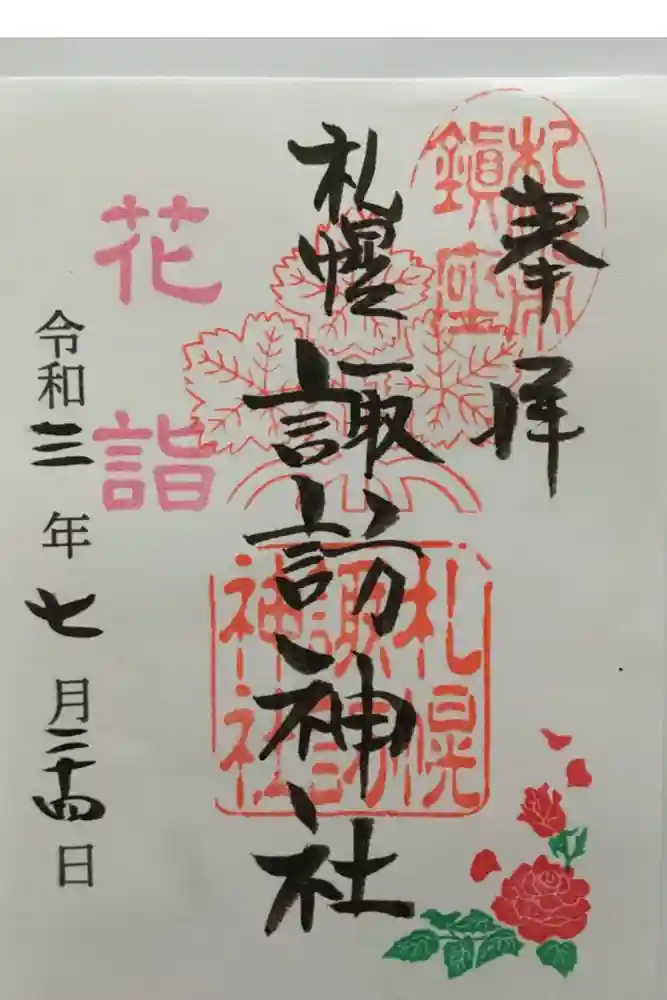 奉拝
札幌鎮座
札幌諏訪神社
札幌
諏訪
神社
花詣
令和三年七月二十四日